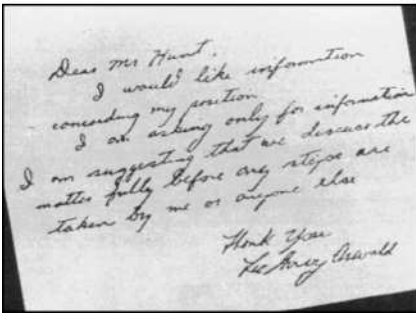 Dear Mr Hunt,
I would like information
concerding my position
I am asking only for information
I am suggesting that we discuss the
matter fully before any steps are
taken by me or anyone else
Thank You
Lee Harvey Oswald